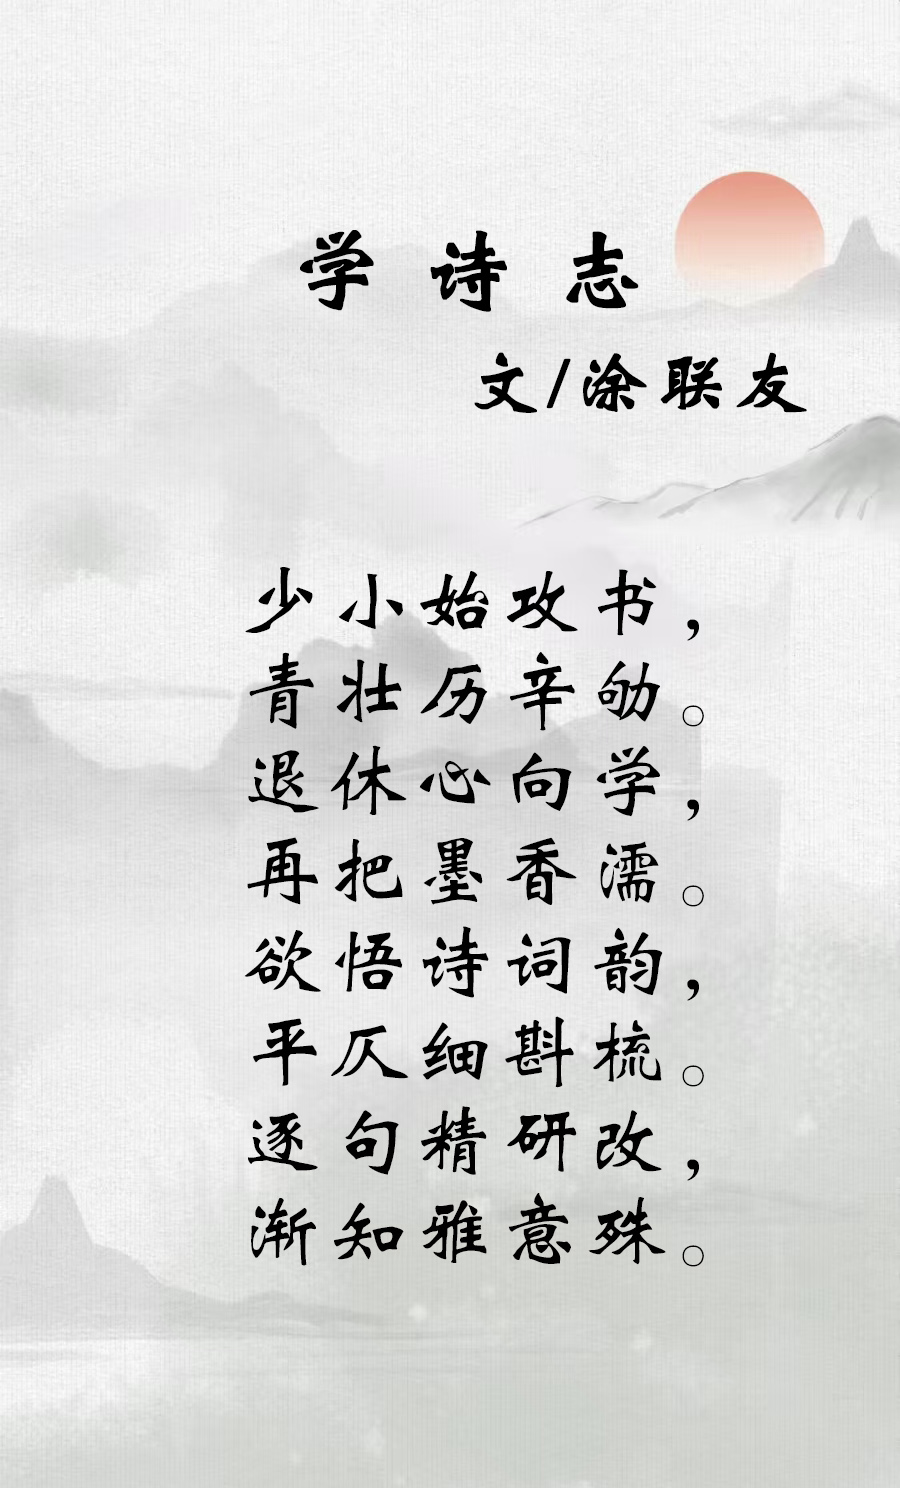 学诗志
文/涂联友
少小始攻书，
青壮历辛劬。
退休心向学，
再把墨香濡。
欲悟诗词韵，
平仄细斟梳。
逐句精研改，
渐知雅意殊。